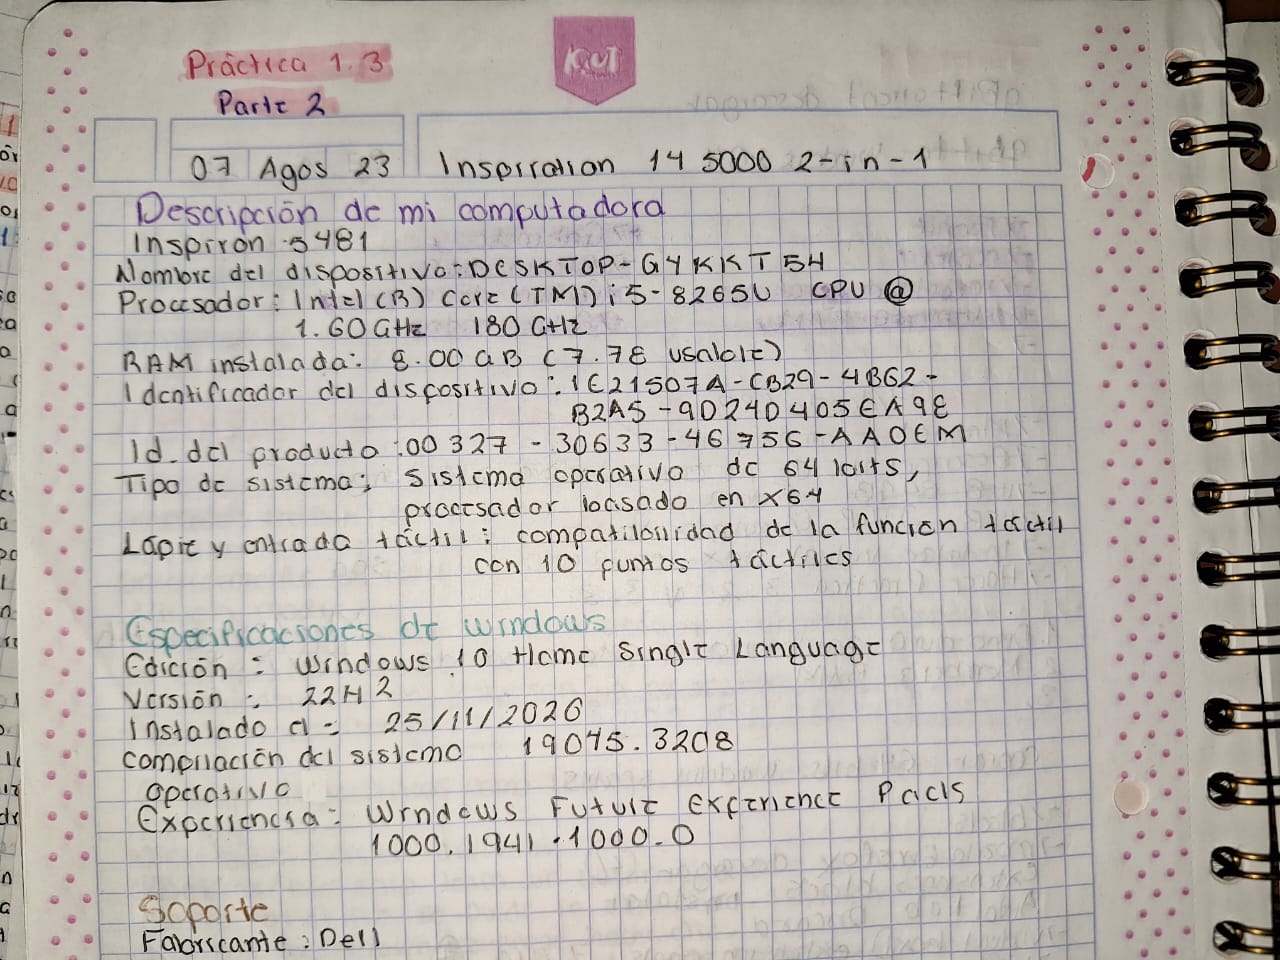 Práctica 1.3
Parte 2
07 Agos 23
Inspiration 14 5000 2-in-1
Descripción de mi computadora
Inspiron 5481
Nombre del dispositivo: DESKTOP-GYKKT54
Procesador: Intel (R) Core (TM) i5-8265U CPU @
1.60GHz 180 GHz
RAM instalada: 8.00 GB (7.78 usable)
Identificador del dispositivo: 1E21507A-CB29-4B62-
B2A5-90240405EA9E
Id del producto: 00327-30633-46756-AAOEM
Tipo de sistema: Sistema operativo de 64 bits,
procesador basado en X64
Lápiz y entrada táctil: compatibilidad de la función táctil
con 10 puntos táctiles
Especificaciones de windows
Edición: Windows 10 Home Single Language
Versión: 22H2
Instalado el: 25/11/2020
compilación del sistema 19045.3208
operativo
Experiencia: Windows Future Experience Pack
1000.1941.1000.0
Soporte
Fabricante: Dell